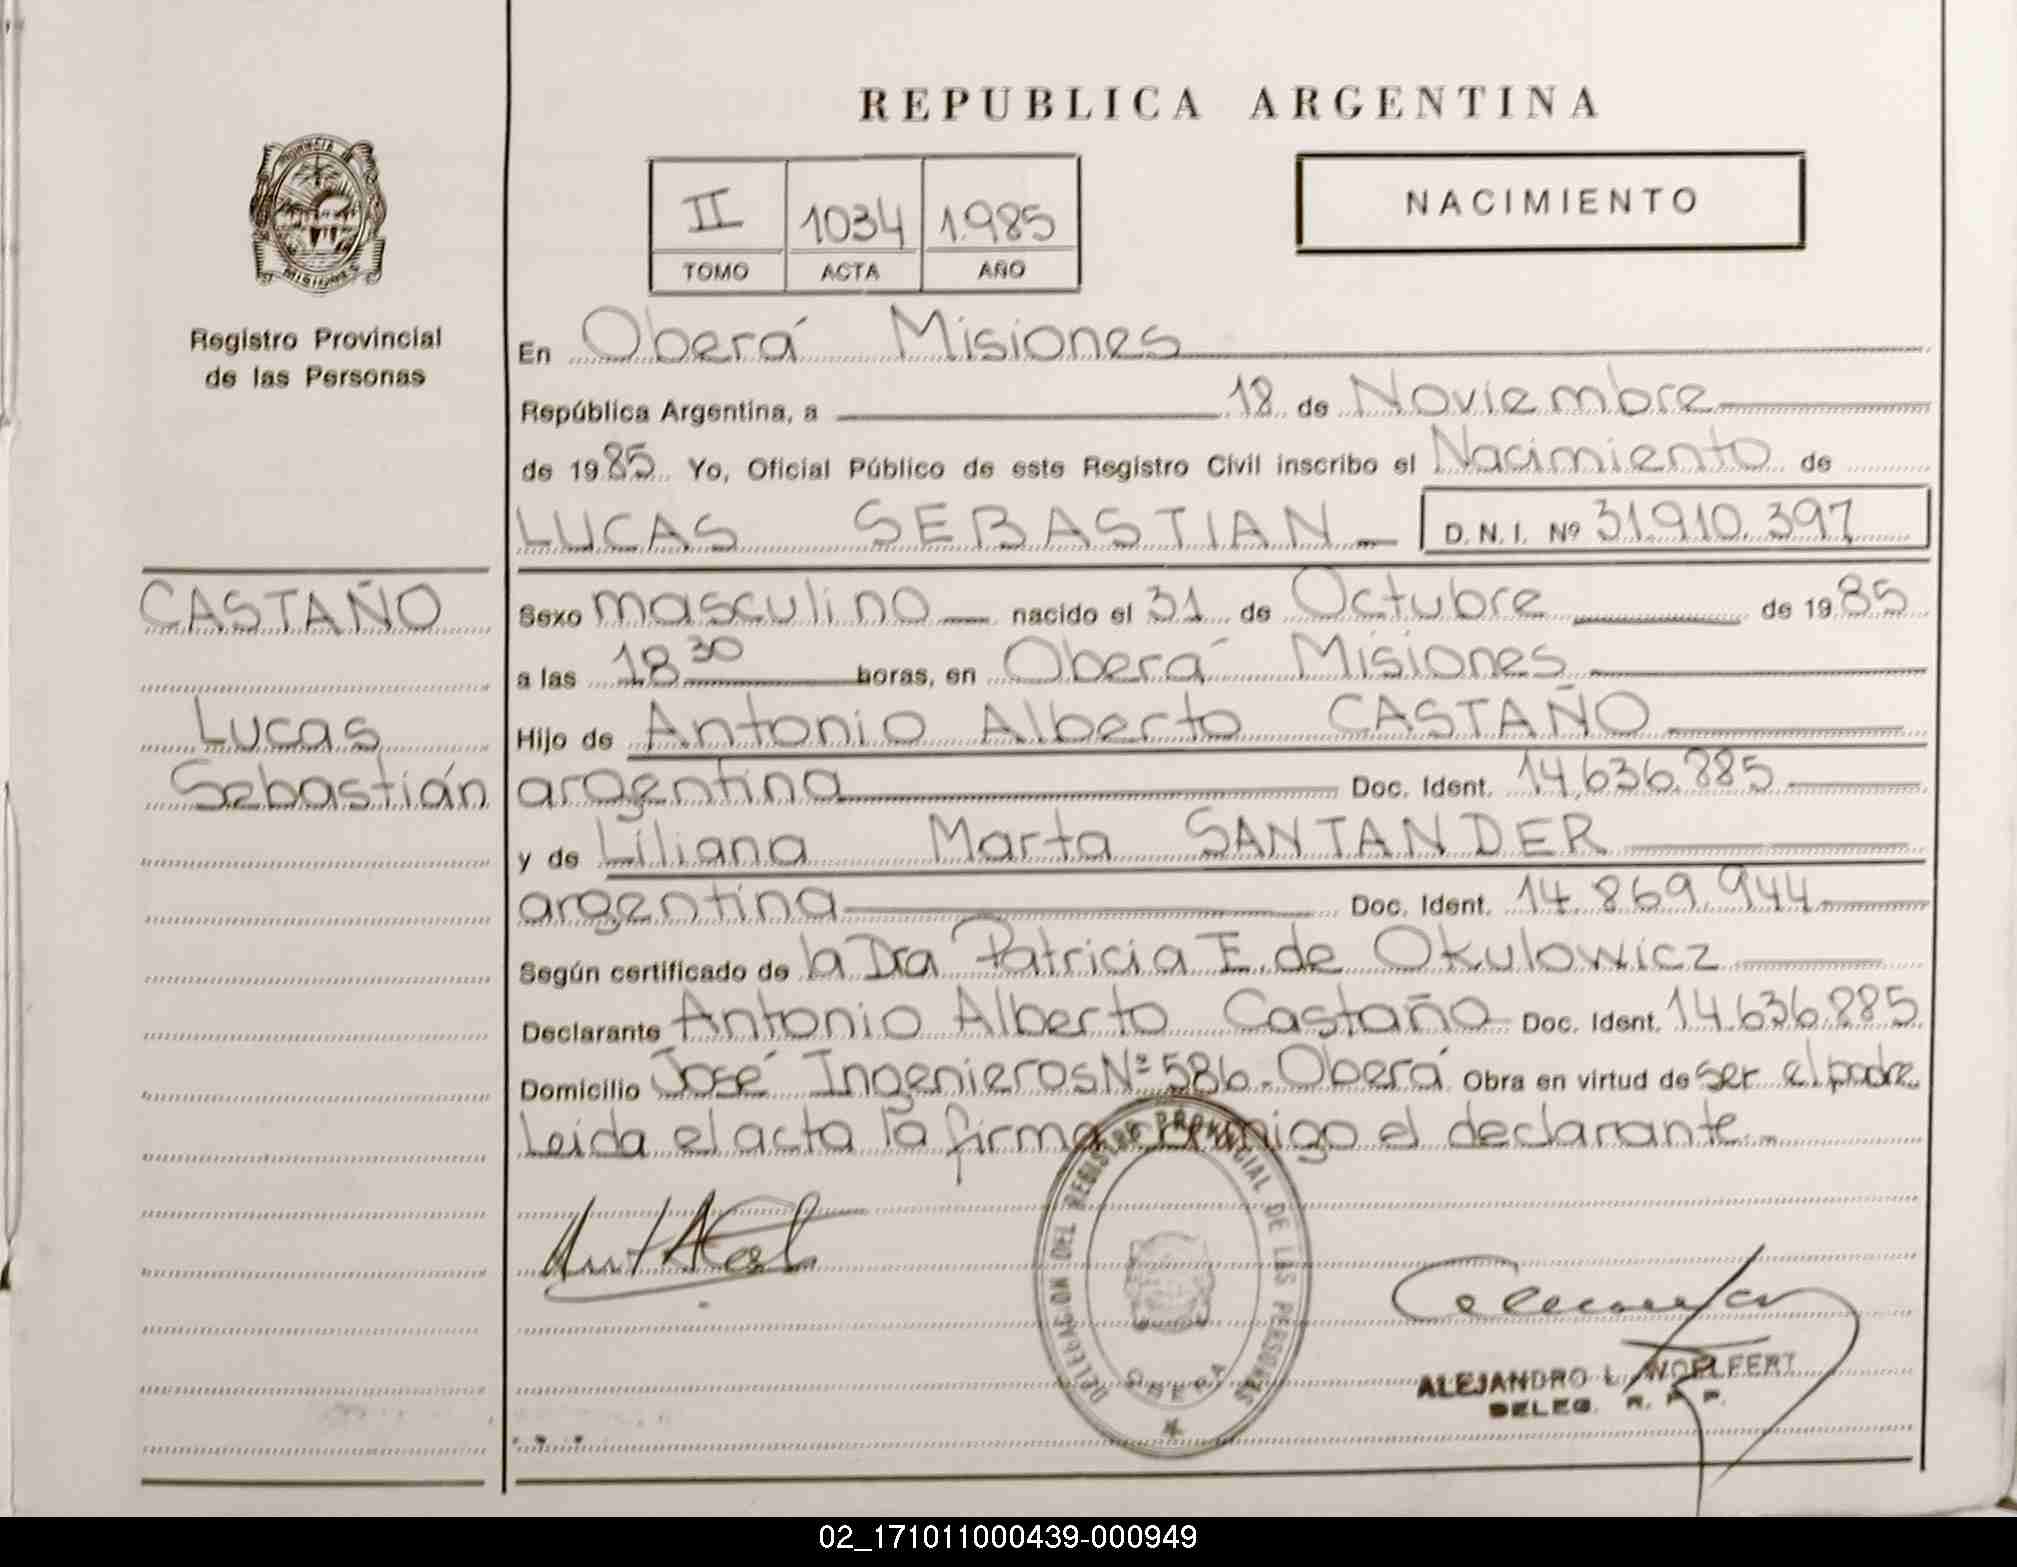 REPUBLICA ARGENTINA
PROVINCIA DE
MISIONES
Registro Provincial
de las Personas
II 1034 1.985
TOMO ACTA AÑO
NACIMIENTO
En Oberá Misiones
República Argentina, a 18 de Noviembre
de 1985 Yo, Oficial Público de este Registro Civil inscribo el Nacimiento de
LUCAS SEBASTIAN D.N.I. Nº 31.910.397
CASTAÑO
Lucas
Sebastián
Sexo masculino nacido el 31 de Octubre de 1985
a las 18 30 horas, en Oberá Misiones
Hijo de Antonio Alberto CASTAÑO
argentina Doc. Ident. 14.636.885
y de Liliana Marta SANTANDER
argentina Doc. Ident. 14.869.944
Según certificado de la Dra Patricia E. de Okulowicz
Declarante Antonio Alberto Castaño Doc. Ident. 14.636.885
Domicilio José Ingenieros Nº 586 - Oberá Obra en virtud de ser el padre
Leída el acta la firma conmigo el declarante
DELEGACION DEL REGISTRO PROVINCIAL DE LAS PERSONAS
OBERA
ALEJANDRO L. WOELFERT
DELEG. R. P. P.
02_171011000439-000949